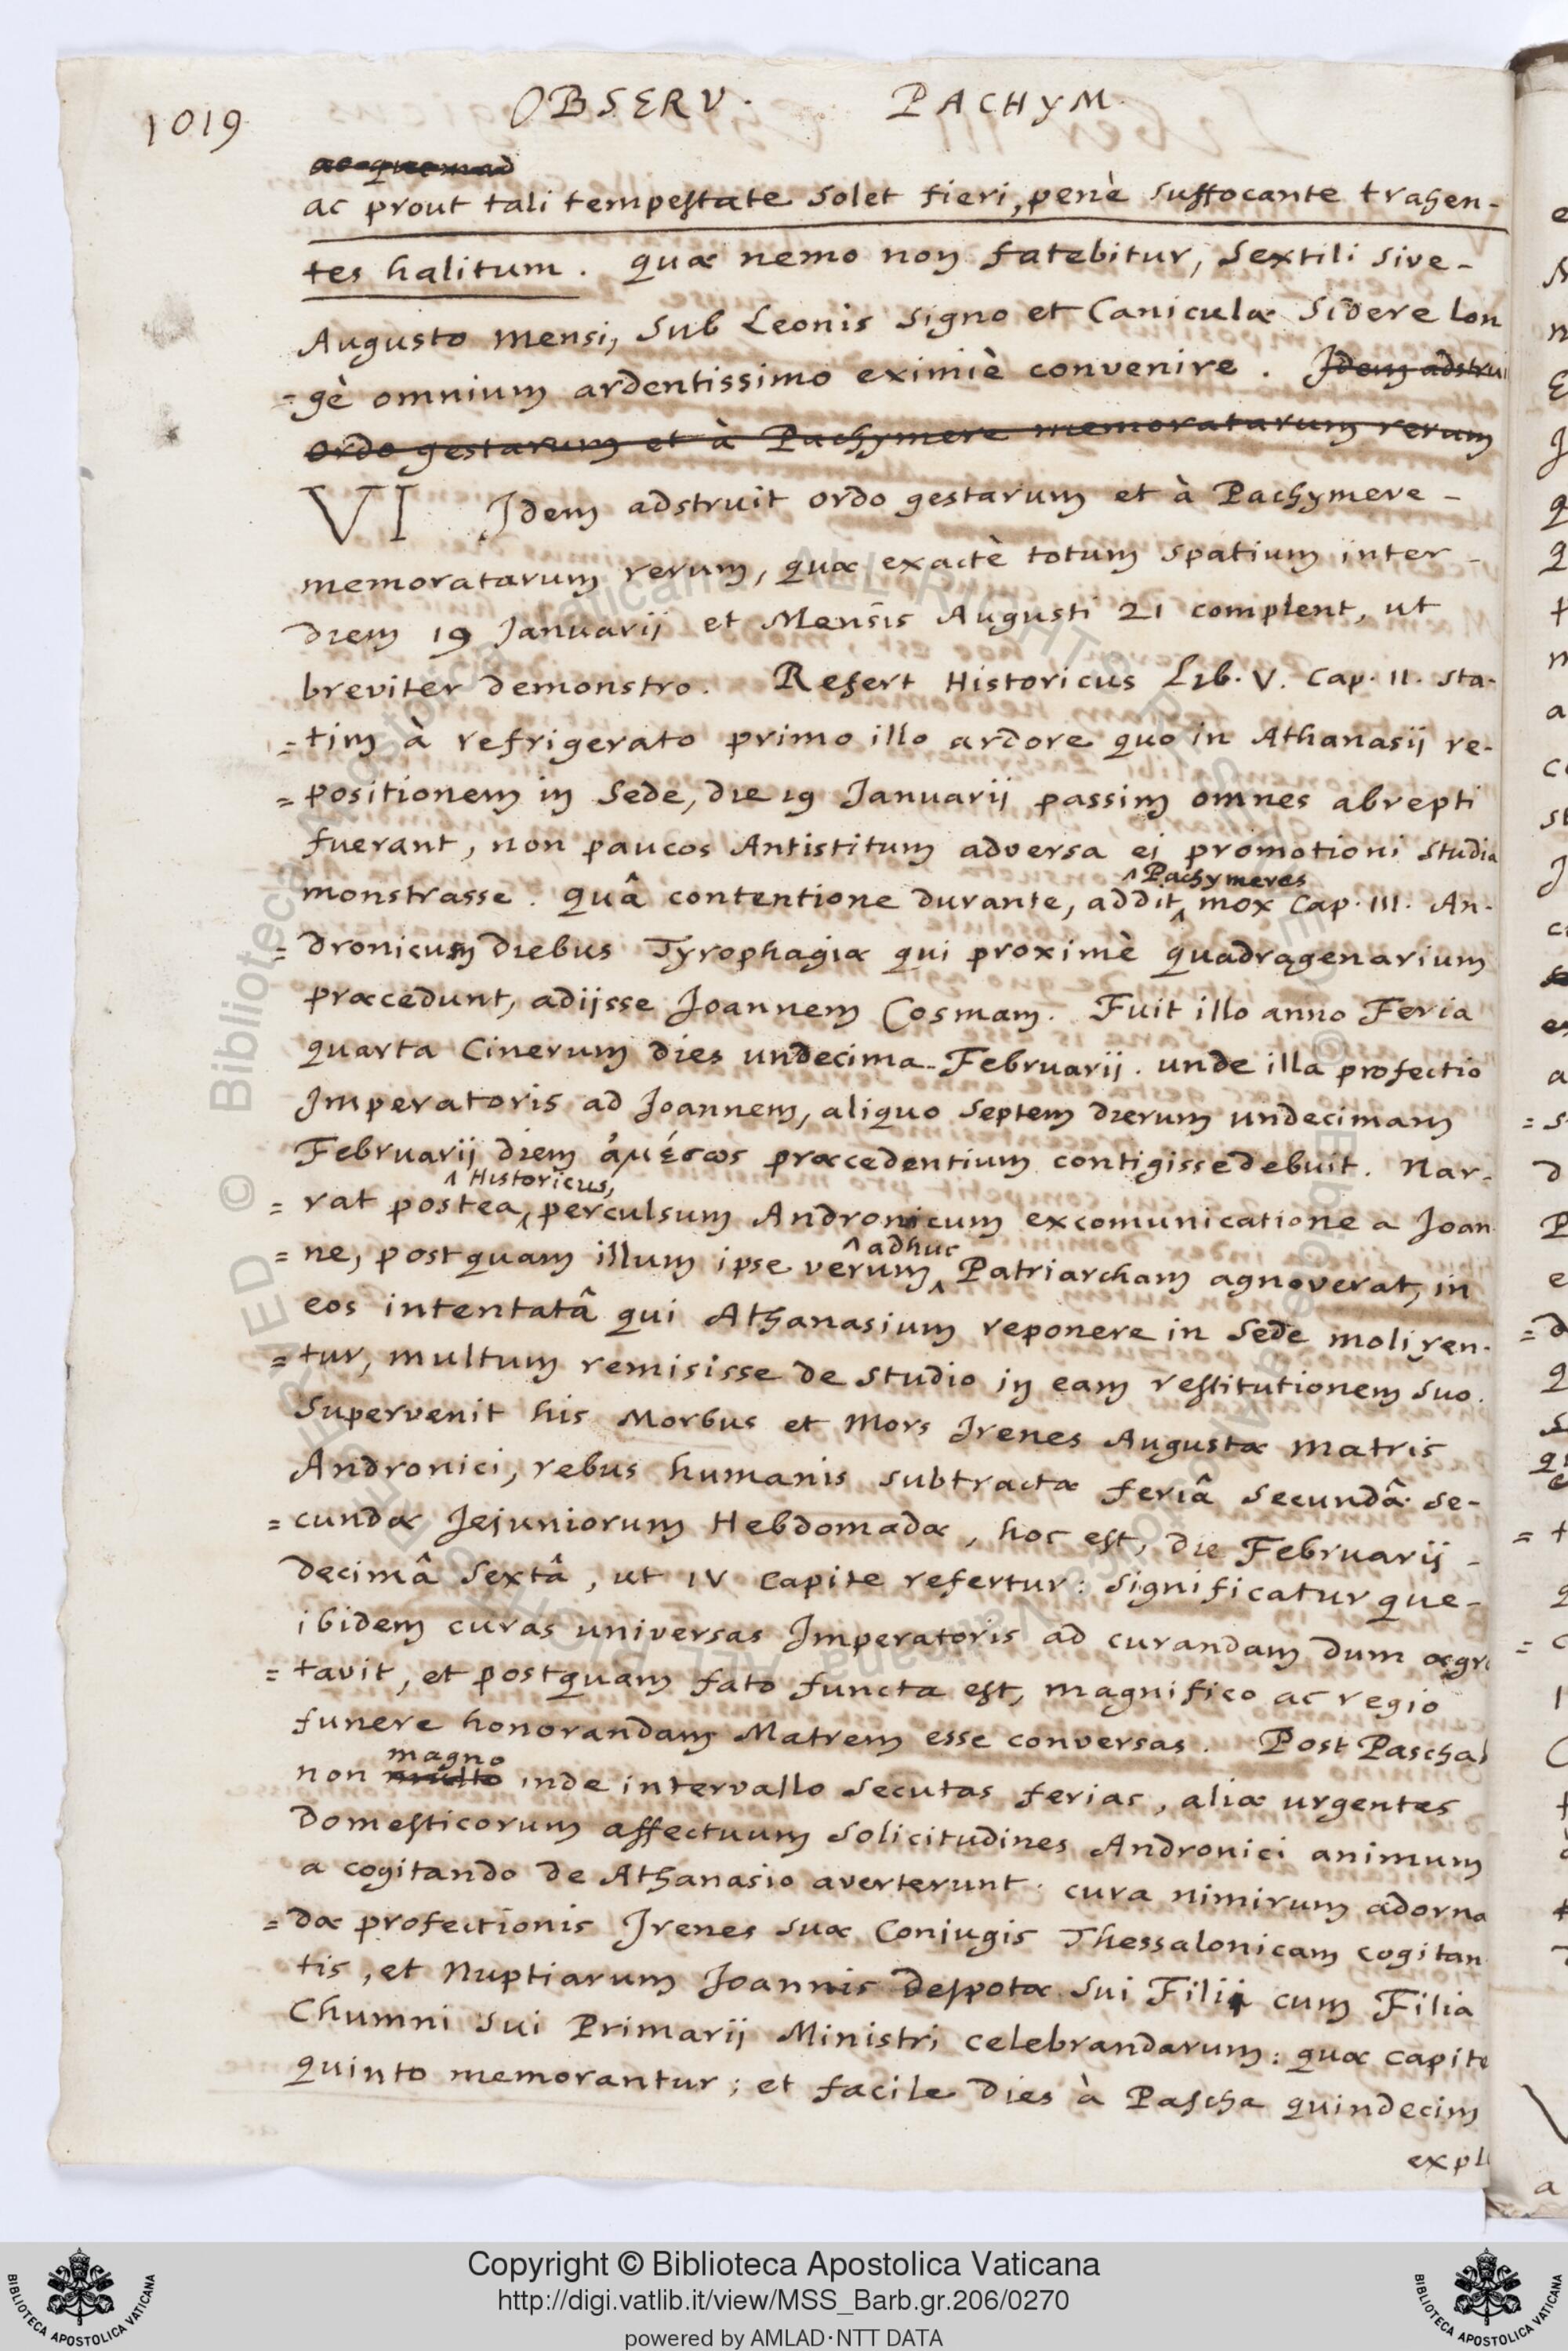 1019 OBSERV. PACHYM.
ac quemad
ac prout tali tempestate solet fieri, penè suffocante trahen-
tes halitum. quæ nemo non fatebitur, Sextili sive-
Augusto mensi, sub Leonis signo et Caniculæ Sidere lon
=gè omnium ardentissimo eximiè convenire. Idem adstrui
ordo gestarum et à Pachymere memoratarum rerum
VI Idem adstruit ordo gestarum et à Pachymere-
memoratarum rerum, quæ exactè totum spatium inter-
diem 19 Januarij et Mensis Augusti 21 complent, ut
breviter demonstro. Refert Historicus Lib. V. Cap. II. sta-
=tim à refrigerato primo illo ardore quo in Athanasij re-
=positionem in Sede, die 19 Januarij passim omnes abrepti
fuerant, non paucos Antistitum adversa ej promotioni studia
^Pachymeres
monstrasse. quâ contentione durante, addit^mox Cap. III. An-
=dronicum diebus Tyrophagiæ qui proximè quadragenarium
præcedunt, adijsse Joannem Cosmam. Fuit illo anno Feria
quarta Cinerum dies undecima-Februarij. unde illa profectio
Imperatoris ad Joannem, aliquo septem dierum undecimam
Februarij diem ἀμέσως præcedentium contigisse debuit. Nar-
^Historicus,
=rat postea^perculsum Andronicum excomunicatione a Joan
^adhuc
=ne, postquam illum ipse verum^Patriarcham agnoverat, in
eos intentatâ qui Athanasium reponere in Sede moliren-
=tur, multum remisisse de studio in eam restitutionem suo.
Supervenit his Morbus et Mors Irenes Augustæ matris
Andronici, rebus humanis subtractæ feriâ secundâ se-
=cundæ Jejuniorum Hebdomadæ, hoc est, die Februarij-
decimâ sextâ, ut IV capite refertur: significatur que-
ibidem curas universas Imperatoris ad curandam dum ægro
=tavit, et postquam fato functa est, magnifico ac regio
funere honorandam Matrem esse conversas. Post Paschal
magno
non multo inde intervallo secutas ferias, aliæ urgentes
domesticorum affectuum solicitudines Andronici animum
a cogitando de Athanasio averterunt. cura nimirum adorna
=dæ profectionis Irenes suæ Coniugis Thessalonicam cogitan
tis, et Nuptiarum Joannis despotæ sui Filij cum Filia
Chumni sui Primarij Ministri celebrandarum: quæ capite
quinto memorantur; et facile dies à Pascha quindecim
expl
Copyright © Biblioteca Apostolica Vaticana
http://digi.vatlib.it/view/MSS_Barb.gr.206/0270
powered by AMLAD·NTT DATA
BIBLIOTECA APOSTOLICA VATICANA
BIBLIOTECA APOSTOLICA VATICANA